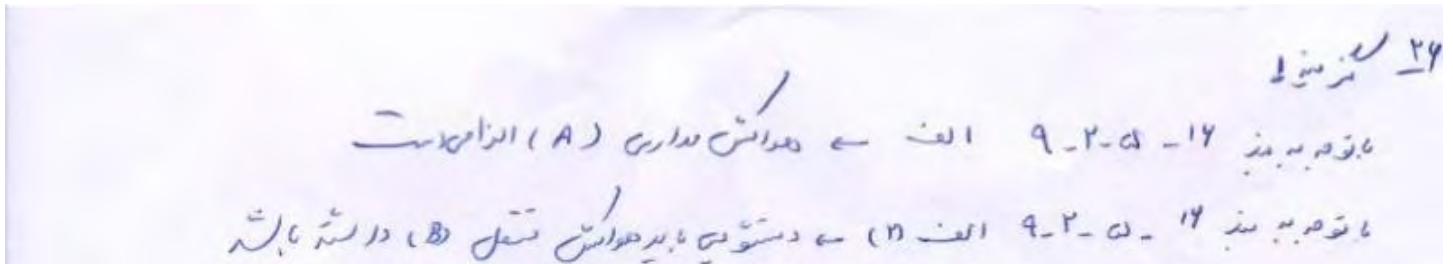 ۲۶_ گزینه ۱
با توجه به بند ۱۶-۵-۲-۹ الف ← هواکش مداری (A) الزامی است
با توجه به بند ۱۶-۵-۲-۹ الف (۳ ← دستشویی باید هواکش مستقل (B) داشته باشد